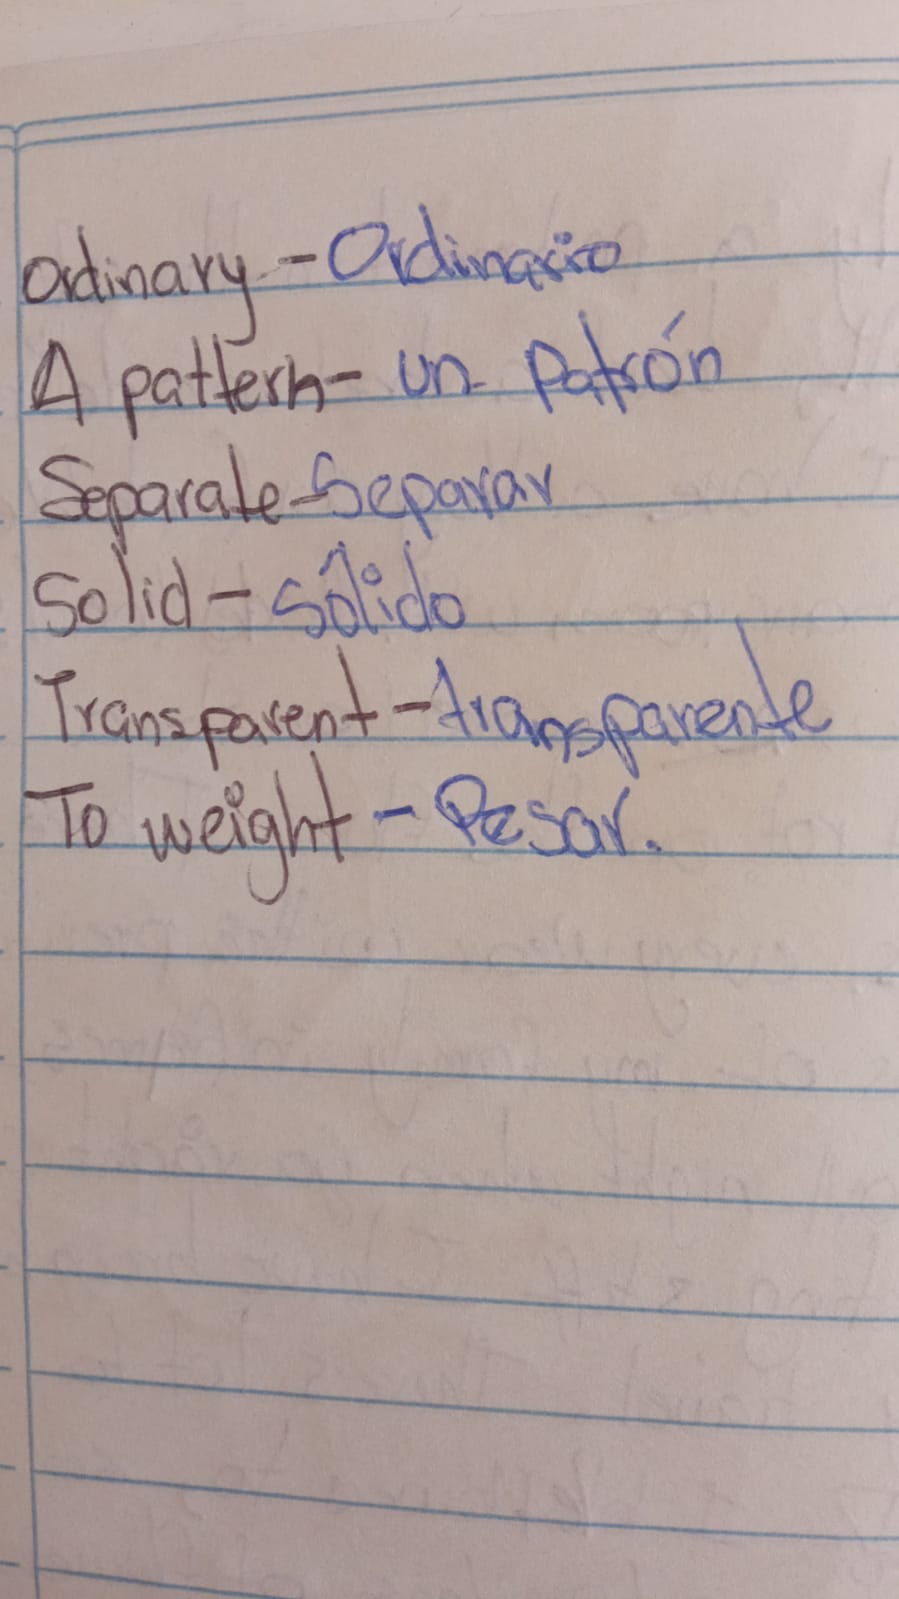 Ordinary - Ordinario
A pattern - un patrón
Separate - Separar
Solid - sólido
Transparent - transparente
To weight - Pesar.